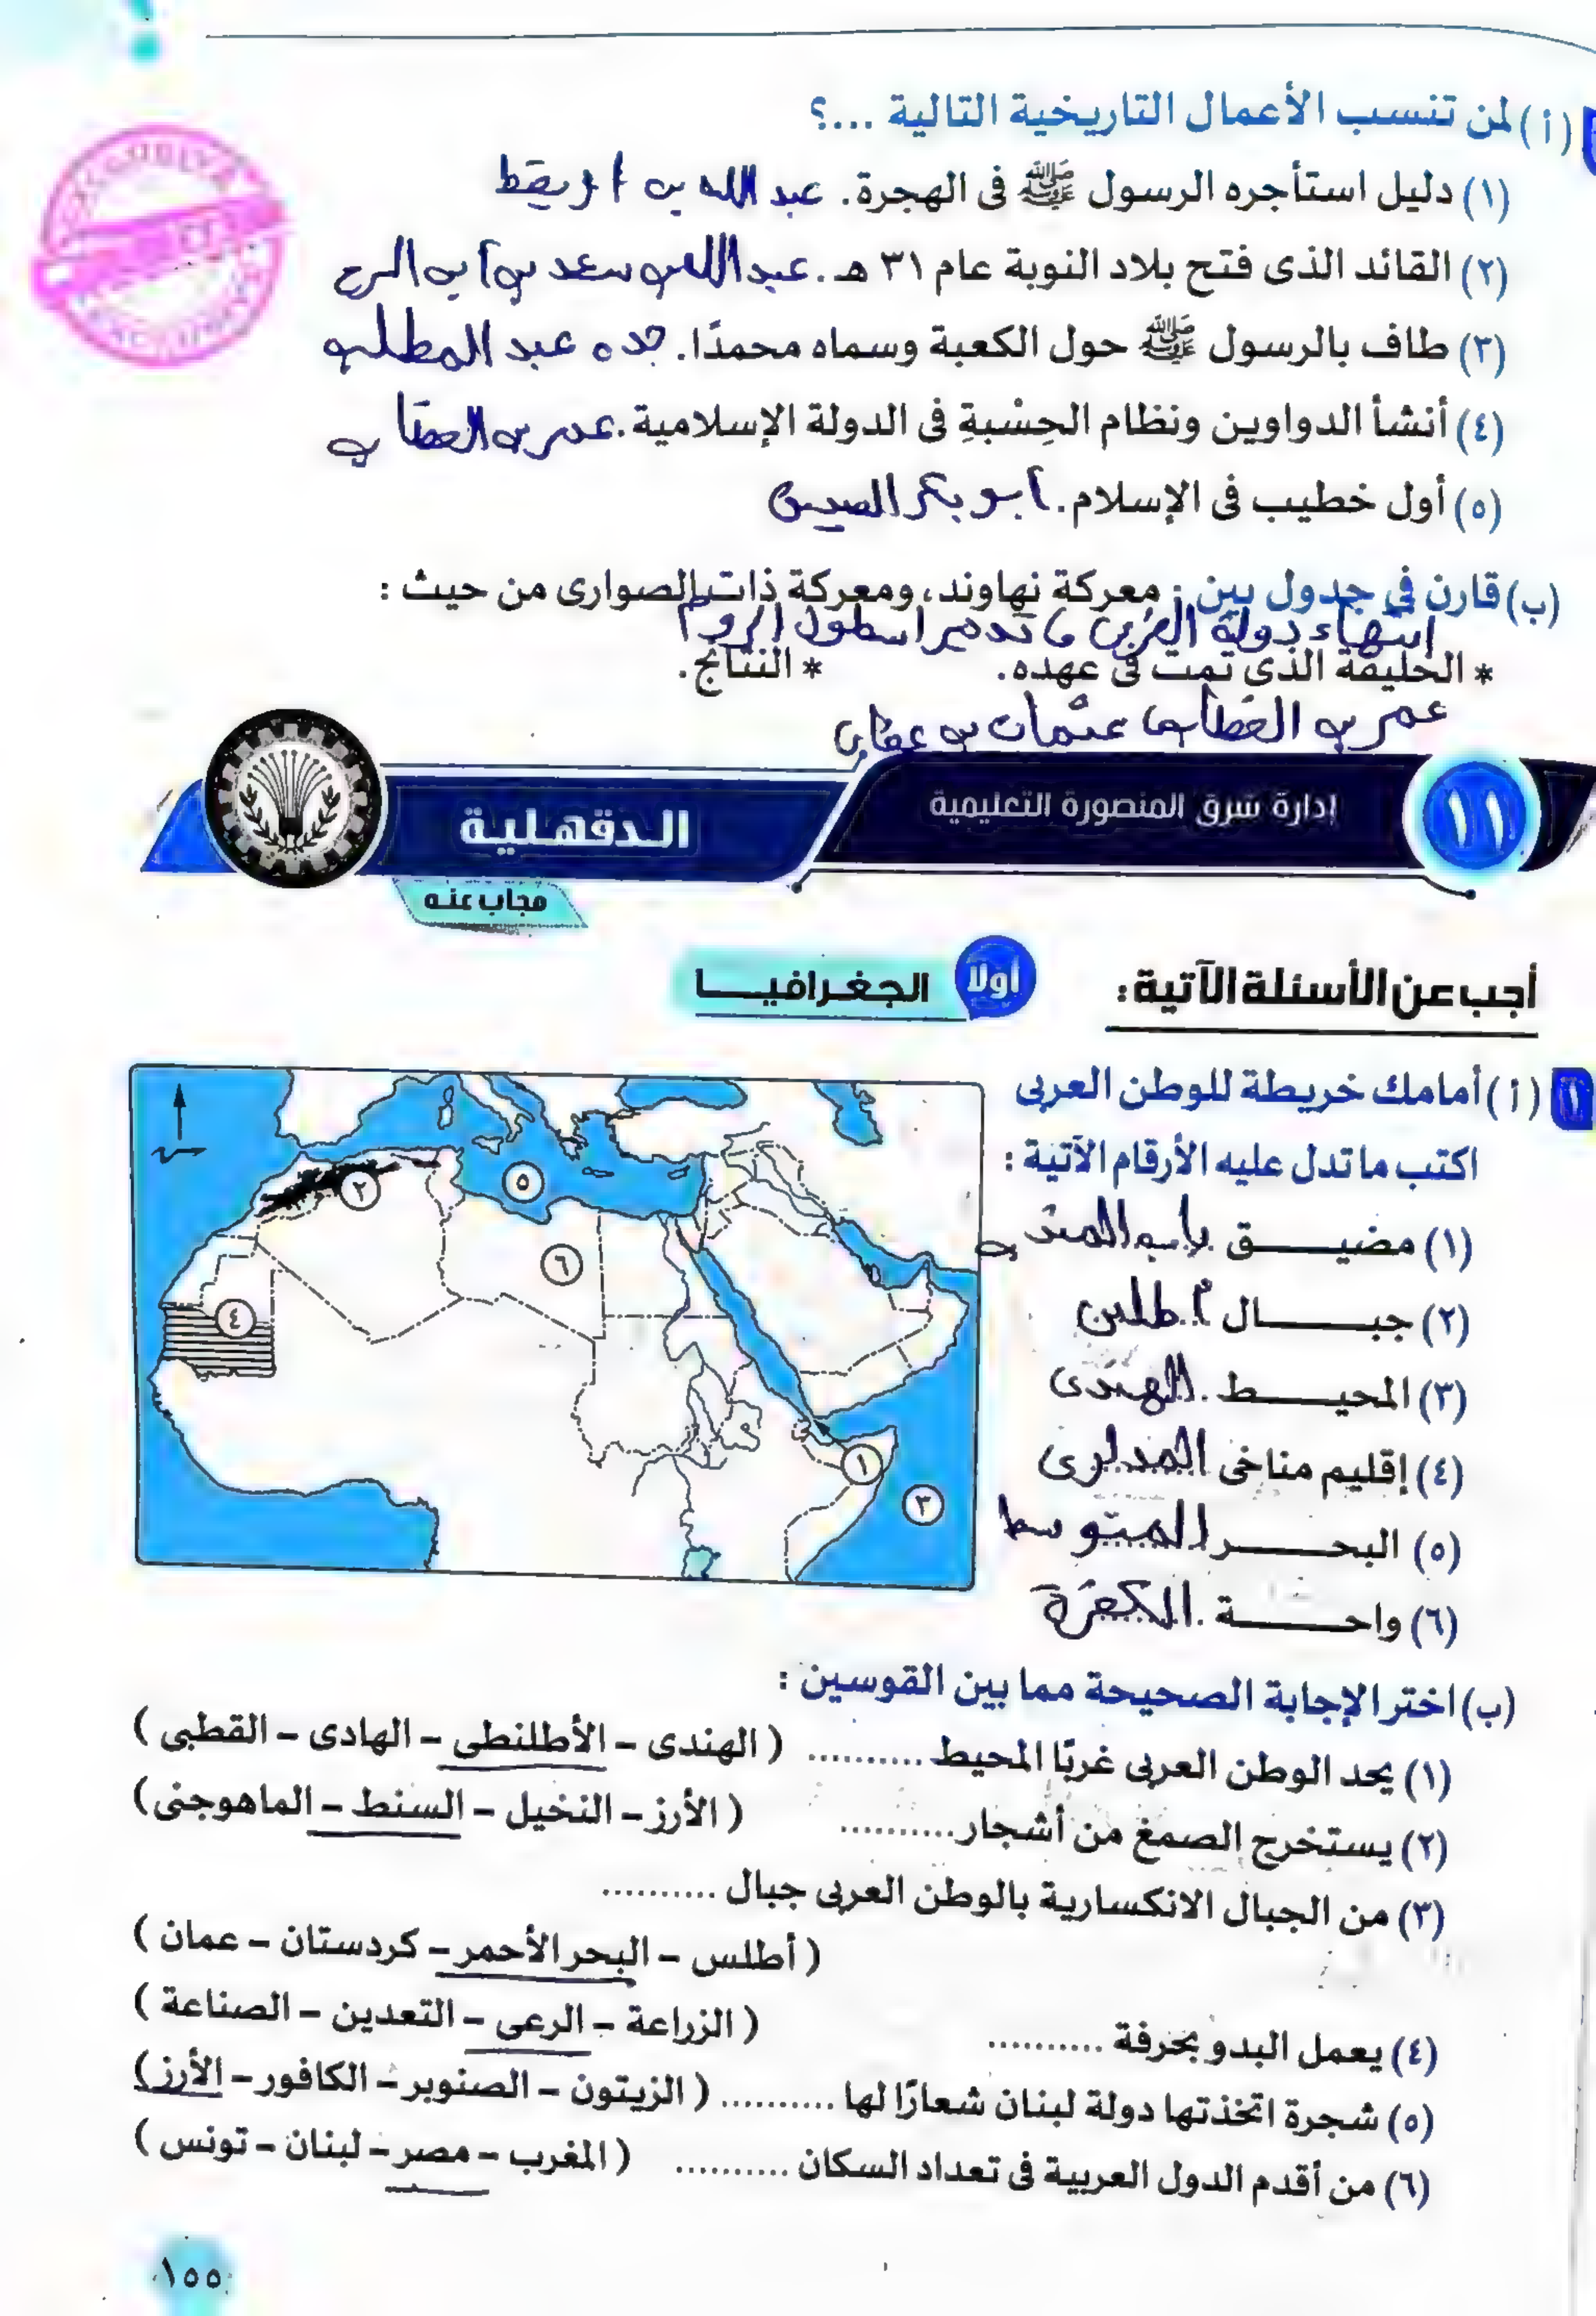 (أ) لمن تنسب الأعمال التاريخية التالية ...؟
(١) دليل استأجره الرسول ﷺ فى الهجرة. عبد الله بن أريقط
(٢) القائد الذى فتح بلاد النوبة عام ٣١ هـ. عبد الله بن سعد بن أبى السرح
(٣) طاف بالرسول ﷺ حول الكعبة وسماه محمدًا. جده عبد المطلب
(٤) أنشأ الدواوين ونظام الحِسْبةِ فى الدولة الإسلامية. عمر بن الخطاب
(٥) أول خطيب فى الإسلام. أبو بكر الصديق
(ب) قارن في جدول بين : معركة نهاوند، ومعركة ذات الصوارى من حيث :
انتهاء دولة الفرس ، تدمير اسطول الروم
* الخليفة الذى تمت فى عهده. * النتائج.
عمر بن الخطاب ، عثمان بن عفان
١١ إدارة شرق المنصورة التعليمية الدقهلية
مجاب عنه
أجب عن الأسئلة الآتية: أولا الجغرافيا
١ (أ) أمامك خريطة للوطن العربى
اكتب ما تدل عليه الأرقام الآتية :
(١) مضيق باب المندب
(٢) جبال أطلس
(٣) المحيط الهندى
(٤) إقليم مناخى المدارى
(٥) البحر المتوسط
(٦) واحة الكفرة
٢
٥
٦
٤
١
٣
(ب) اختر الإجابة الصحيحة مما بين القوسين :
(١) يحد الوطن العربى غربًا المحيط .......... ( الهندى – الأطلنطى – الهادى – القطبى )
(٢) يستخرج الصمغ من أشجار.......... ( الأرز – النخيل – السنط – الماهوجنى)
(٣) من الجبال الانكسارية بالوطن العربى جبال ..........
( أطلس – البحر الأحمر – كردستان – عمان )
(٤) يعمل البدو بحرفة .......... ( الزراعة – الرعى – التعدين – الصناعة )
(٥) شجرة اتخذتها دولة لبنان شعارًا لها .......... ( الزيتون – الصنوبر – الكافور – الأرز )
(٦) من أقدم الدول العربية فى تعداد السكان .......... ( المغرب – مصر – لبنان – تونس )
١٥٥